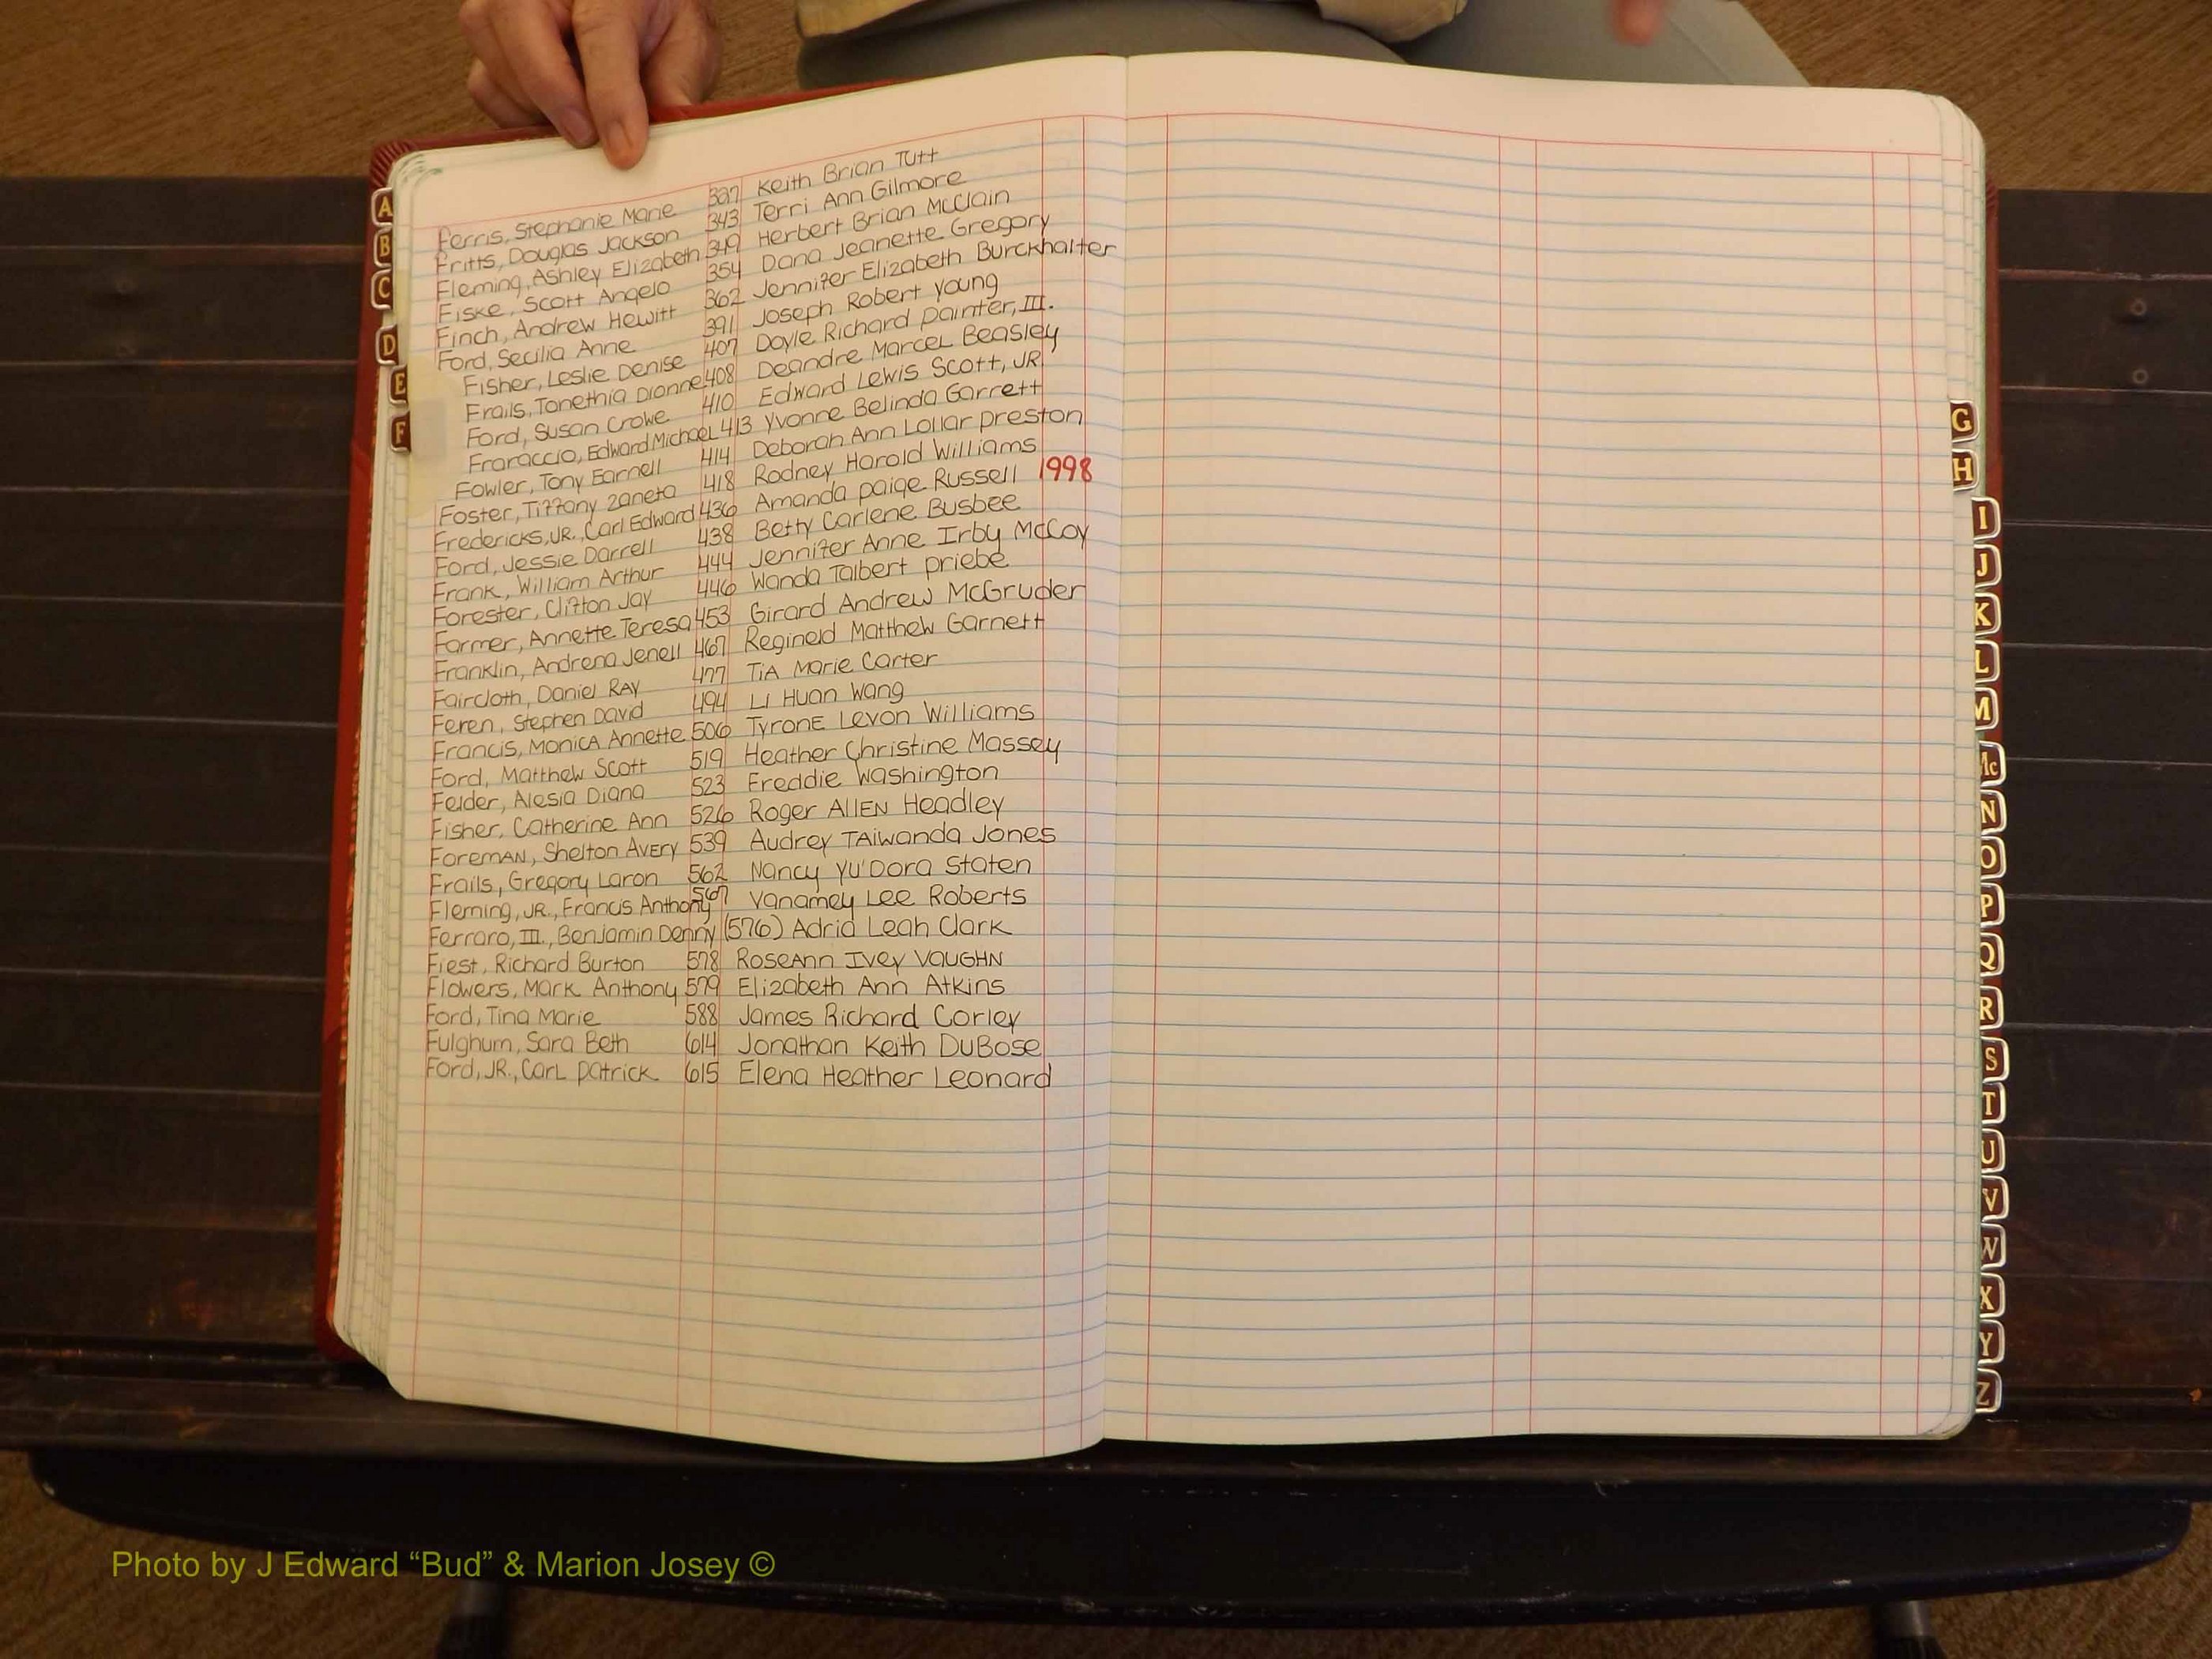 Ferris, Stephanie Marie 327 Keith Brian Tutt
Fritts, Douglas Jackson 343 Terri Ann Gilmore
Fleming, Ashley Elizabeth 349 Herbert Brian McClain
Fiske, Scott Angelo 354 Dana Jeanette Gregory
Finch, Andrew Hewitt 362 Jennifer Elizabeth Burckhalter
Ford, Secilia Anne 391 Joseph Robert Young
Fisher, Leslie Denise 407 Doyle Richard Painter, III.
Frails, Tonethia Dionne 408 Deandre Marcel Beasley
Ford, Susan Crowe 410 Edward Lewis Scott, JR.
Fraraccio, Edward Michael 413 Yvonne Belinda Garrett
Fowler, Tony Earnell 414 Deborah Ann Lollar Preston
Foster, Tiffany Zaneta 418 Rodney Harold Williams
Fredericks, JR., Carl Edward 436 Amanda Paige Russell 1998
Ford, Jessie Darrell 438 Betty Carlene Busbee
Frank, William Arthur 444 Jennifer Anne Irby McCoy
Forester, Clifton Jay 446 Wanda Talbert Priebe
Farmer, Annette Teresa 453 Girard Andrew McGruder
Franklin, Andrena Jenell 467 Regineld Matthew Garnett
Faircloth, Daniel Ray 477 Tia Marie Carter
Feren, Stephen David 494 Li Huan Wang
Francis, Monica Annette 506 Tyrone Levon Williams
Ford, Matthew Scott 519 Heather Christine Massey
Felder, Alesia Diana 523 Freddie Washington
Fisher, Catherine Ann 526 Roger Allen Headley
Foreman, Shelton Avery 539 Audrey Taiwanda Jones
Frails, Gregory Laron 562 Nancy Yu'Dora Staten
Fleming, JR., Francis Anthony 567 Vanamey Lee Roberts
Ferraro, III., Benjamin Denny (576) Adria Leah Clark
Fiest, Richard Burton 578 RoseAnn Ivey VAUGHN
Flowers, Mark Anthony 579 Elizabeth Ann Atkins
Ford, Tina Marie 588 James Richard Corley
Fulghum, Sara Beth 614 Jonathan Keith DuBose
Ford, JR., Carl Patrick 615 Elena Heather Leonard
A
B
C
D
E
F
G
H
I
J
K
L
M
Mc
N
O
P
Q
R
S
T
U
V
W
X
Y
Z
Photo by J Edward “Bud” & Marion Josey ©